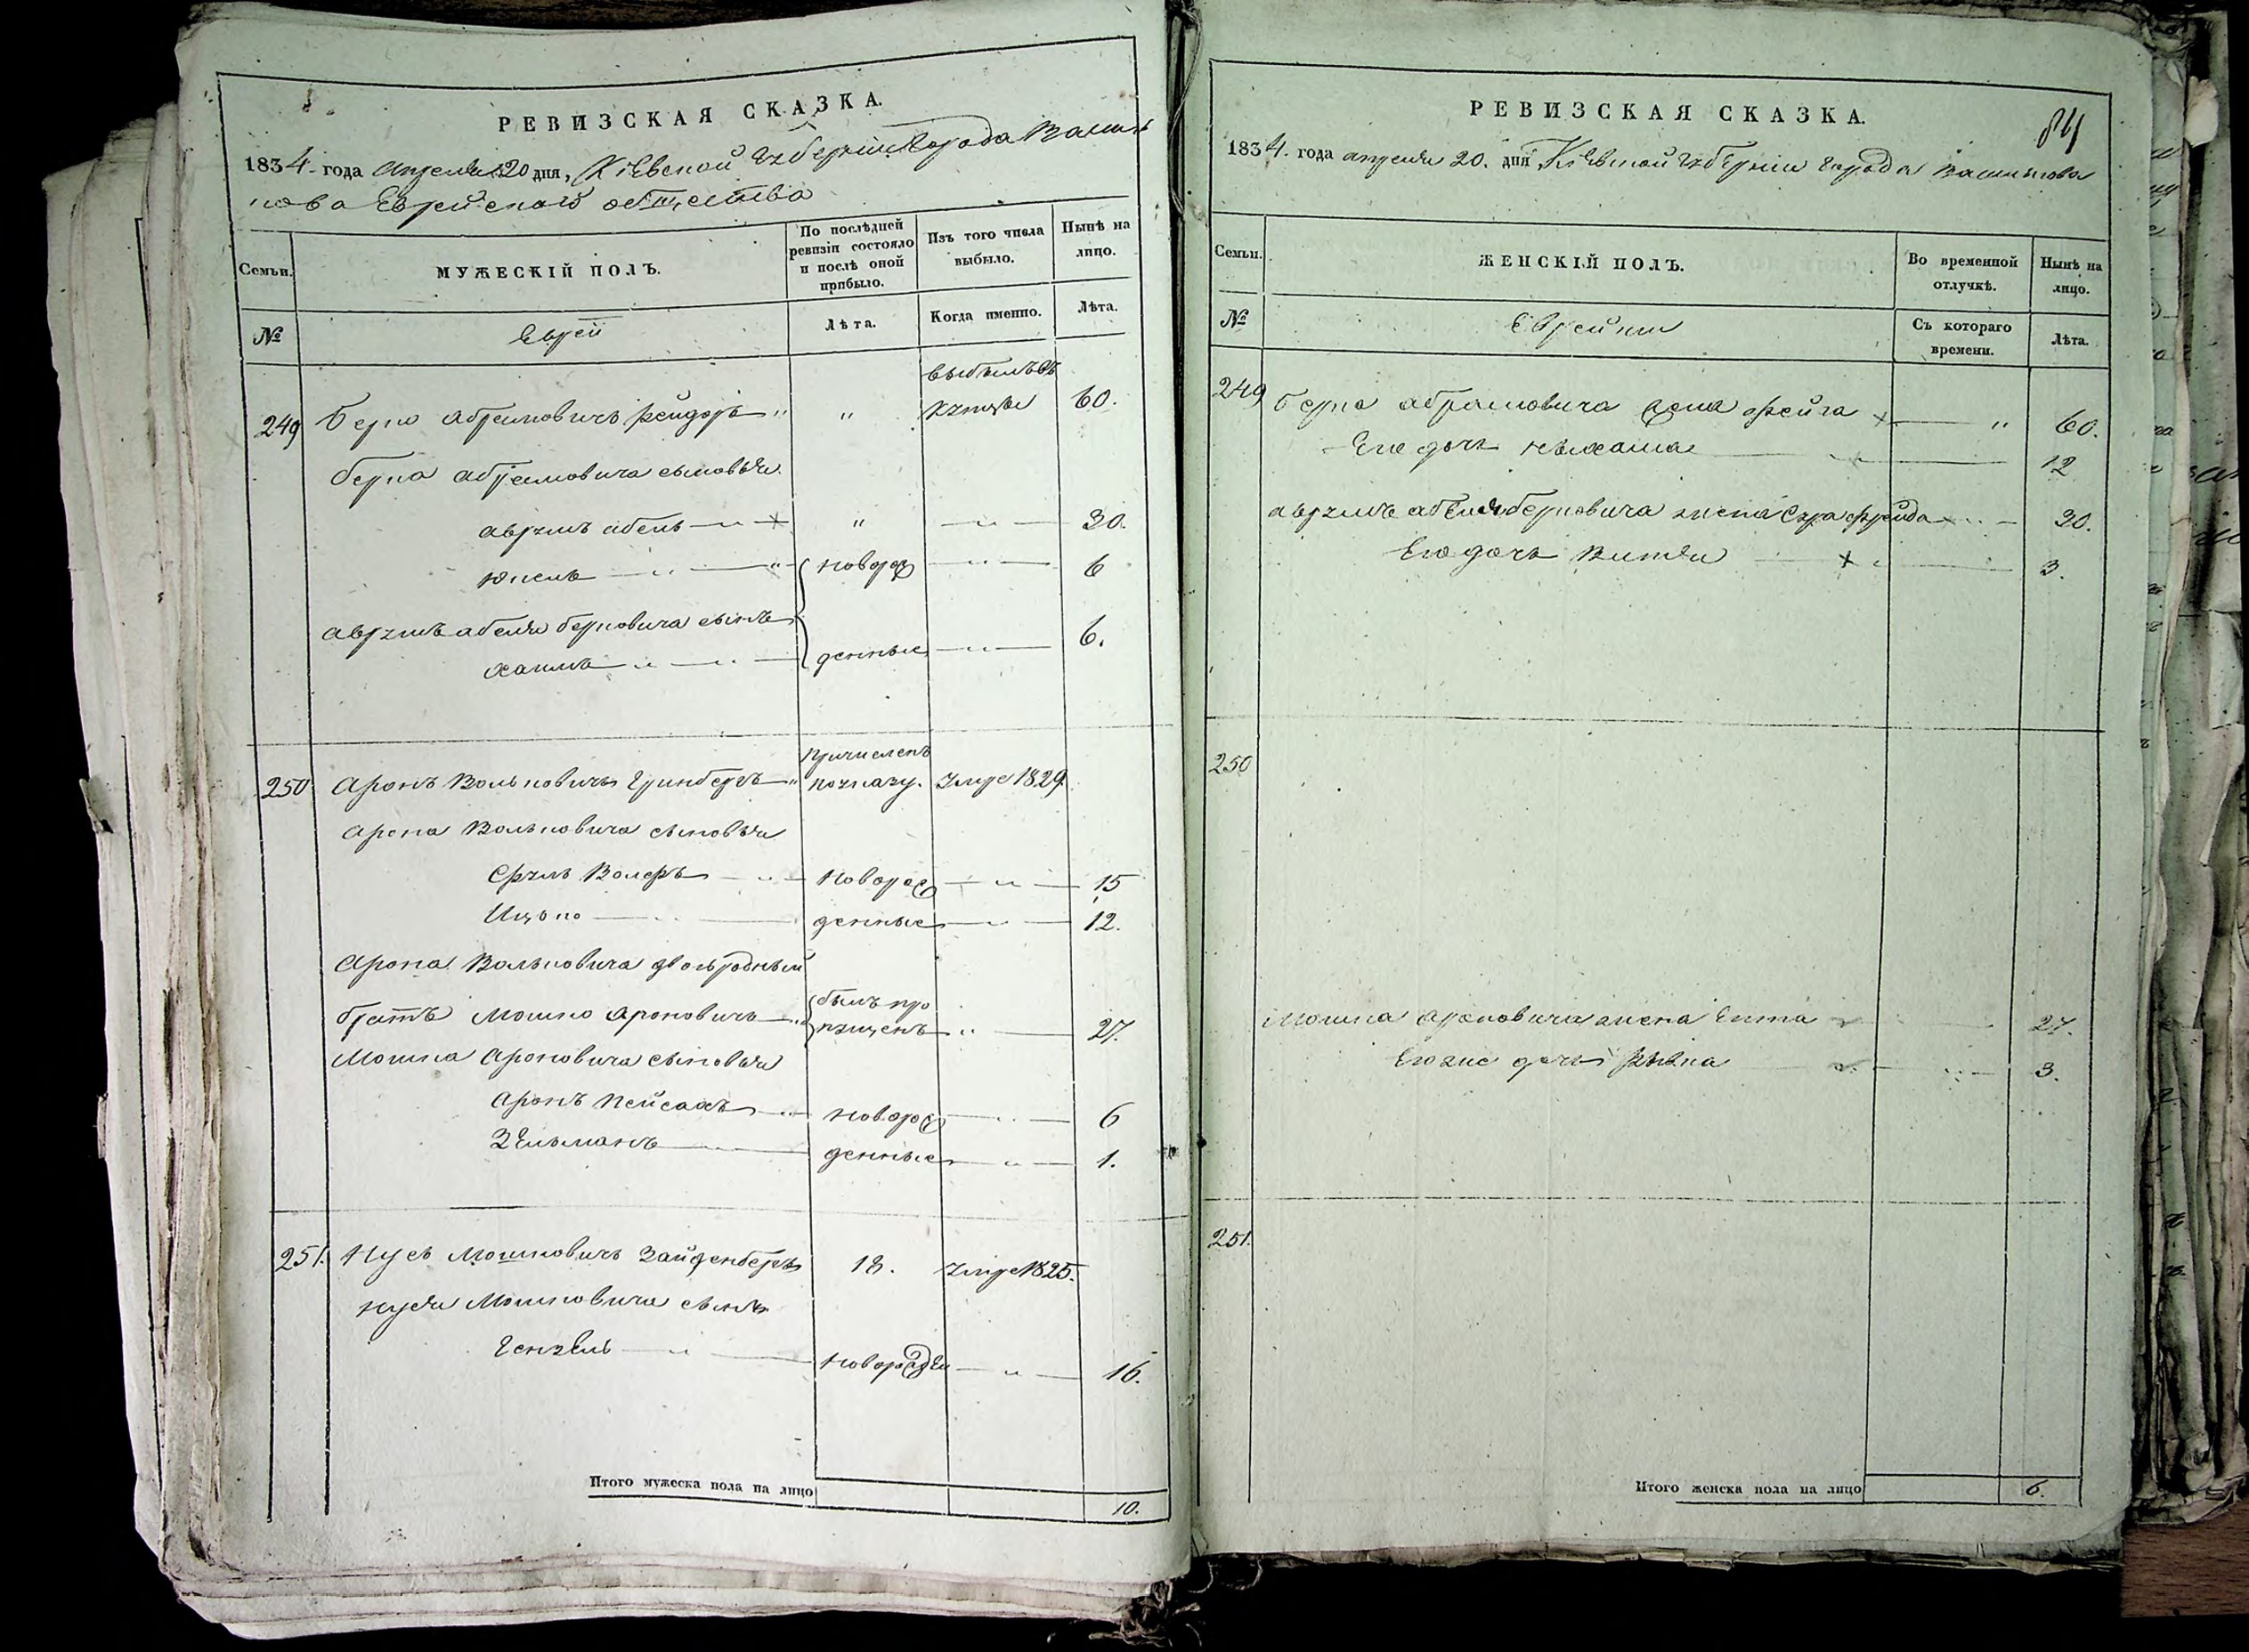 РЕВИЗСКАЯ СКАЗКА.
1834. года Апреля 20 дня, Кіевской Губерніи Города Василь
кова Еврейского общества
Семьи.
МУЖЕСКІЙ ПОЛЪ.
По послѣдней ревизіи состояло и послѣ оной прибыло.
Изъ того числа выбыло.
Нынѣ на лицо.
№
Евреи
Лѣта.
Когда именно.
Лѣта.
249 Берко Абрамовичъ " " купцы 60.
Берка Абрамовича сыновья
Аврумъ Абель " 30.
Юкель новорож 6
Аврумъ Абеля Берковича сынъ
Хаимъ денные 6.
250 Аронъ Вольковичъ Гринбергъ Причисленъ по указу. Умре 1829.
Арона Вольковича сыновья
Сруль Волфъ новорож 15
Ицко денные 12.
Арона Вольковича двоюродный
братъ Мошко Ароновичъ былъ пропущенъ 27.
Мошка Ароновича сыновья
Аронъ Пейсахъ новорож 6
Зельманъ денные 1.
251. Нусь Мошковичъ Зайденбергъ 18. Умре 1825.
Нуся Мошковича сынъ
Гензель 16.
Итого мужеска пола на лицо 10.
РЕВИЗСКАЯ СКАЗКА.
84
1834. года апреля 20. дня Кіевской Губерніи Города Василькова
Семьи.
ЖЕНСКІЙ ПОЛЪ.
Во временной отлучкѣ.
Нынѣ на лицо.
№
Еврейки
Съ котораго времени.
Лѣта.
249 Берка Абрамовича жена Фейга " 60.
Его дочь Нехама 12
Аврумъ Абеля Берковича жена Сура Фрейда 30.
Его дочь 3.
250
Мошка Ароновича жена Ента 27.
Его же дочь Рывка 3.
251.
Итого женска пола на лицо 6.